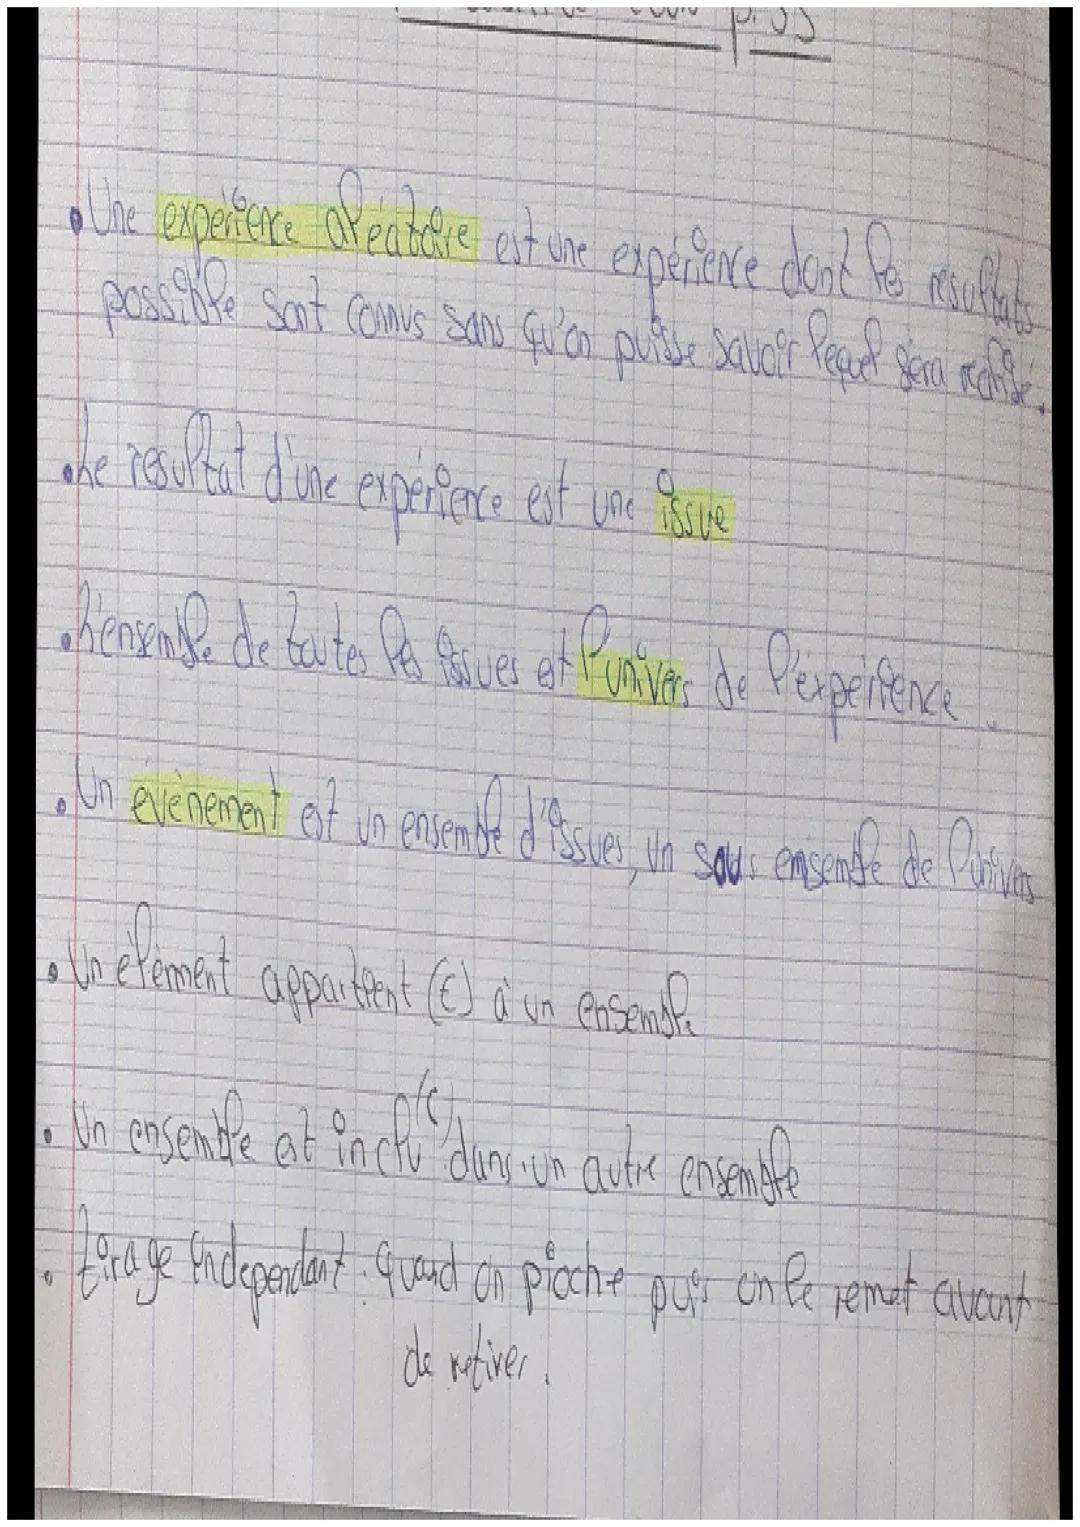 p.55
• Une expérience aléatoire est une expérience dont les résultats
possible sont connus sans qu'on puisse savoir lequel sera réalisé.
• Le resultat d'une expérience est une issue
• L'ensemble de toutes les issues est l'univers de l'expérience.
• Un évènement est un ensemble d'issues, un sous ensemble de l'univers
• Un élément appartient (∈) à un ensemble
• Un ensemble est inclu (⊂) dans un autre ensemble
• tirage independant : quand on pioche puis on le remet avant
de retirer.